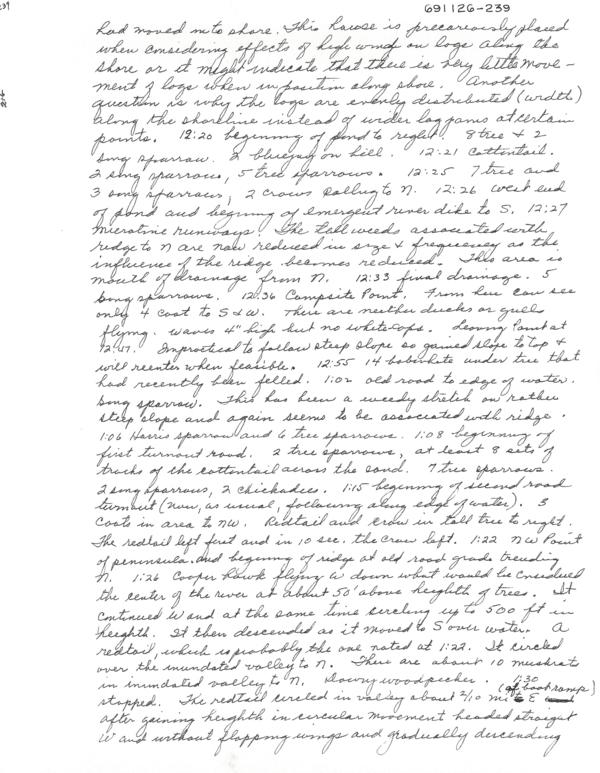 691126-239
had moved into shore. This house is precariously placed
when considering effects of high wind on logs along the
shore or it might indicate that there is very little move-
ment of logs when in position along shore. Another
question is why the logs are evenly distributed (width)
along the shoreline instead of wider log jams at certain
points. 12:20 beginning of pond to right. 8 tree & 2
song sparrow. 2 bluejay on hill. 12:21 Cottontail.
2 song sparrows, 5 tree sparrows. 12:25 7 tree and
3 song sparrows, 2 crows calling to N. 12:26 West end
of pond and beginning of emergent river dike to S. 12:27
Microtine runways. The tall weeds associated with
ridge to N are now reduced in size & frequency as the
influence of the ridge becomes reduced. This area is
mouth of drainage from N. 12:33 final drainage. 5
song sparrows. 12:36 Campsite Point. From here can see
only 4 coot to S & W. There are neither ducks or gulls
flying. Waves 4" high but no whitecaps. Leaving Point at
12:47. Impractical to follow steep slope so gained slope to top &
will reenter when feasible. 12:55 14 bobwhite under tree that
had recently been felled. 1:02 old road to edge of water.
Song sparrow. This has been a weedy stretch on rather
steep slope and again seems to be associated with ridge.
1:06 Harris sparrow and 6 tree sparrows. 1:08 beginning of
first turnout road. 2 tree sparrows, at least 8 sets of
tracks of the cottontail across the sand. 7 tree sparrows.
2 song sparrows, 2 chickadees. 1:15 beginning of second road
turnout (Now, as usual, following along edge of water). 3
Coots in area to NW. Redtail and crow in tall tree to right.
The redtail left first and in 10 sec. the crow left. 1:22 NW Point
of peninsula and beginning of ridge at old road grade trending
N. 1:26 Cooper hawk flying W down what would be considered
the center of the river at about 50' above heighth of trees. It
continued W and at the same time circling up to 500 ft in
heighth. It then descended as it moved to S over water. A
redtail, which is probably the one noted at 1:22. It circled
over the inundated valley to N. There are about 10 muskrats
in inundated valley to N. Downy woodpecker. 1:30
stopped. The redtail circled in valley about 2/10 mi E (of boat ramp)
after gaining heighth in circular movement headed straight
W and without flapping wings and gradually descending